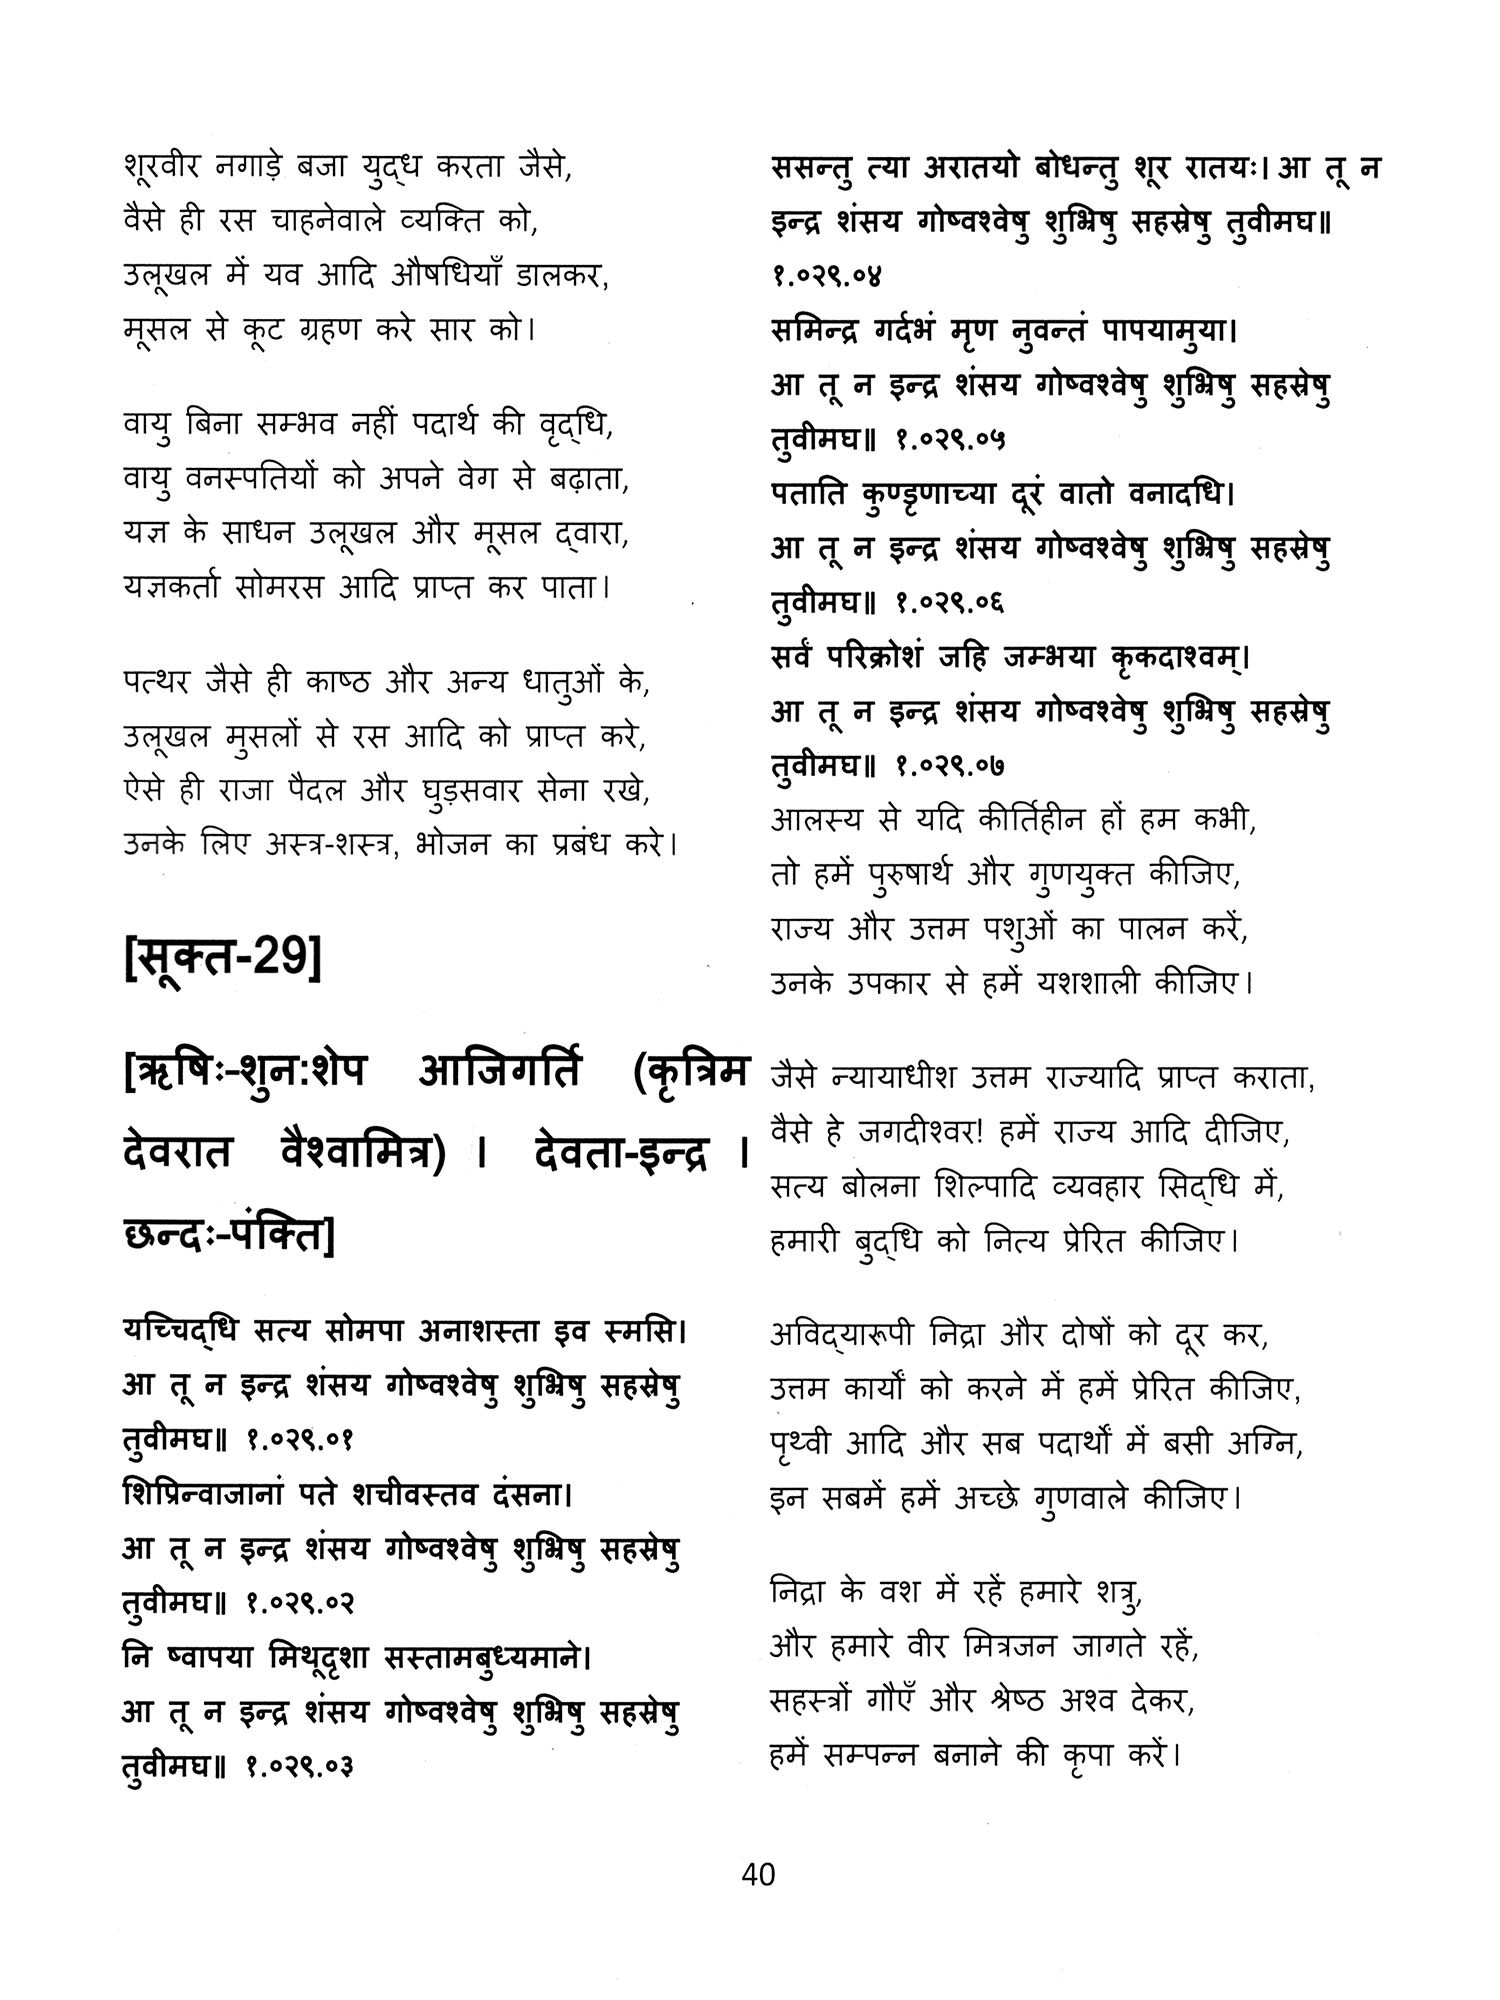 शूरवीर नगाड़े बजा युद्ध करता जैसे,
वैसे ही रस चाहनेवाले व्यक्ति को,
उलूखल में यव आदि औषधियाँ डालकर,
मूसल से कूट ग्रहण करे सार को।
वायु बिना सम्भव नहीं पदार्थ की वृद्धि,
वायु वनस्पतियों को अपने वेग से बढ़ाता,
यज्ञ के साधन उलूखल और मूसल द्वारा,
यज्ञकर्ता सोमरस आदि प्राप्त कर पाता।
पत्थर जैसे ही काष्ठ और अन्य धातुओं के,
उलूखल मुसलों से रस आदि को प्राप्त करे,
ऐसे ही राजा पैदल और घुड़सवार सेना रखे,
उनके लिए अस्त्र-शस्त्र, भोजन का प्रबंध करे।
[सूक्त-29]
[ऋषिः-शुन:शेप आजिगर्ति (कृत्रिम
देवरात वैश्वामित्र) । देवता-इन्द्र ।
छन्दः-पंक्ति]
यच्चिद्धि सत्य सोमपा अनाशस्ता इव स्मसि।
आ तू न इन्द्र शंसय गोष्वश्वेषु शुभ्रिषु सहस्रेषु
तुवीमघ॥ १.०२९.०१
शिप्रिन्वाजानां पते शचीवस्तव दंसना।
आ तू न इन्द्र शंसय गोष्वश्वेषु शुभ्रिषु सहस्रेषु
तुवीमघ॥ १.०२९.०२
नि ष्वापया मिथूदृशा सस्तामबुध्यमाने।
आ तू न इन्द्र शंसय गोष्वश्वेषु शुभ्रिषु सहस्रेषु
तुवीमघ॥ १.०२९.०३
ससन्तु त्या अरातयो बोधन्तु शूर रातयः। आ तू न
इन्द्र शंसय गोष्वश्वेषु शुभ्रिषु सहस्रेषु तुवीमघ॥
१.०२९.०४
समिन्द्र गर्दभं मृण नुवन्तं पापयामुया।
आ तू न इन्द्र शंसय गोष्वश्वेषु शुभ्रिषु सहस्रेषु
तुवीमघ॥ १.०२९.०५
पताति कुण्डृणाच्या दूरं वातो वनादधि।
आ तू न इन्द्र शंसय गोष्वश्वेषु शुभ्रिषु सहस्रेषु
तुवीमघ॥ १.०२९.०६
सर्वं परिक्रोशं जहि जम्भया कृकदाश्वम्।
आ तू न इन्द्र शंसय गोष्वश्वेषु शुभ्रिषु सहस्रेषु
तुवीमघ॥ १.०२९.०७
आलस्य से यदि कीर्तिहीन हों हम कभी,
तो हमें पुरुषार्थ और गुणयुक्त कीजिए,
राज्य और उत्तम पशुओं का पालन करें,
उनके उपकार से हमें यशशाली कीजिए।
जैसे न्यायाधीश उत्तम राज्यादि प्राप्त कराता,
वैसे हे जगदीश्वर! हमें राज्य आदि दीजिए,
सत्य बोलना शिल्पादि व्यवहार सिद्धि में,
हमारी बुद्धि को नित्य प्रेरित कीजिए।
अविद्यारूपी निद्रा और दोषों को दूर कर,
उत्तम कार्यों को करने में हमें प्रेरित कीजिए,
पृथ्वी आदि और सब पदार्थों में बसी अग्नि,
इन सबमें हमें अच्छे गुणवाले कीजिए।
निद्रा के वश में रहें हमारे शत्रु,
और हमारे वीर मित्रजन जागते रहें,
सहस्त्रों गौएँ और श्रेष्ठ अश्व देकर,
हमें सम्पन्न बनाने की कृपा करें।
40